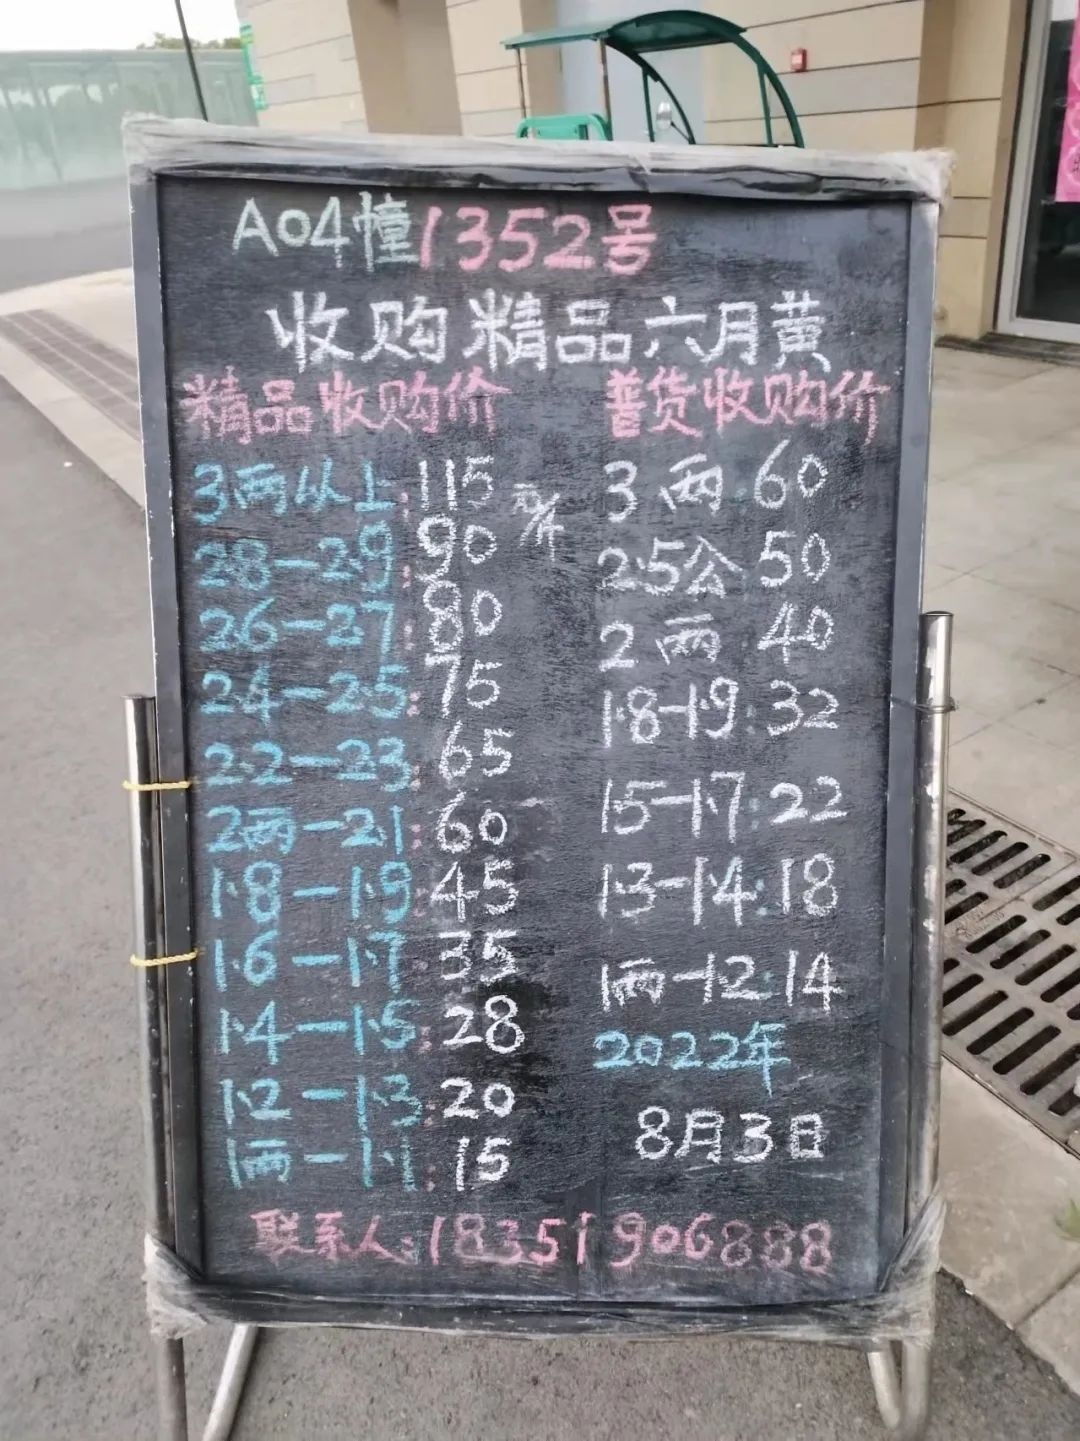 A04幢1352号
收购精品六月黄
精品收购价
3两以上:115元/斤
2.8-2.9:90
2.6-2.7:80
2.4-2.5:75
2.2-2.3:65
2两-2.1:60
1.8-1.9:45
1.6-1.7:35
1.4-1.5:28
1.2-1.3:20
1两-1.1:15
普货收购价
3两:60
2.5公50
2两 40
1.8-1.9:32
1.5-1.7:22
1.3-1.4:18
1两-1.2:14
2022年
8月3日
联系人:18351906888